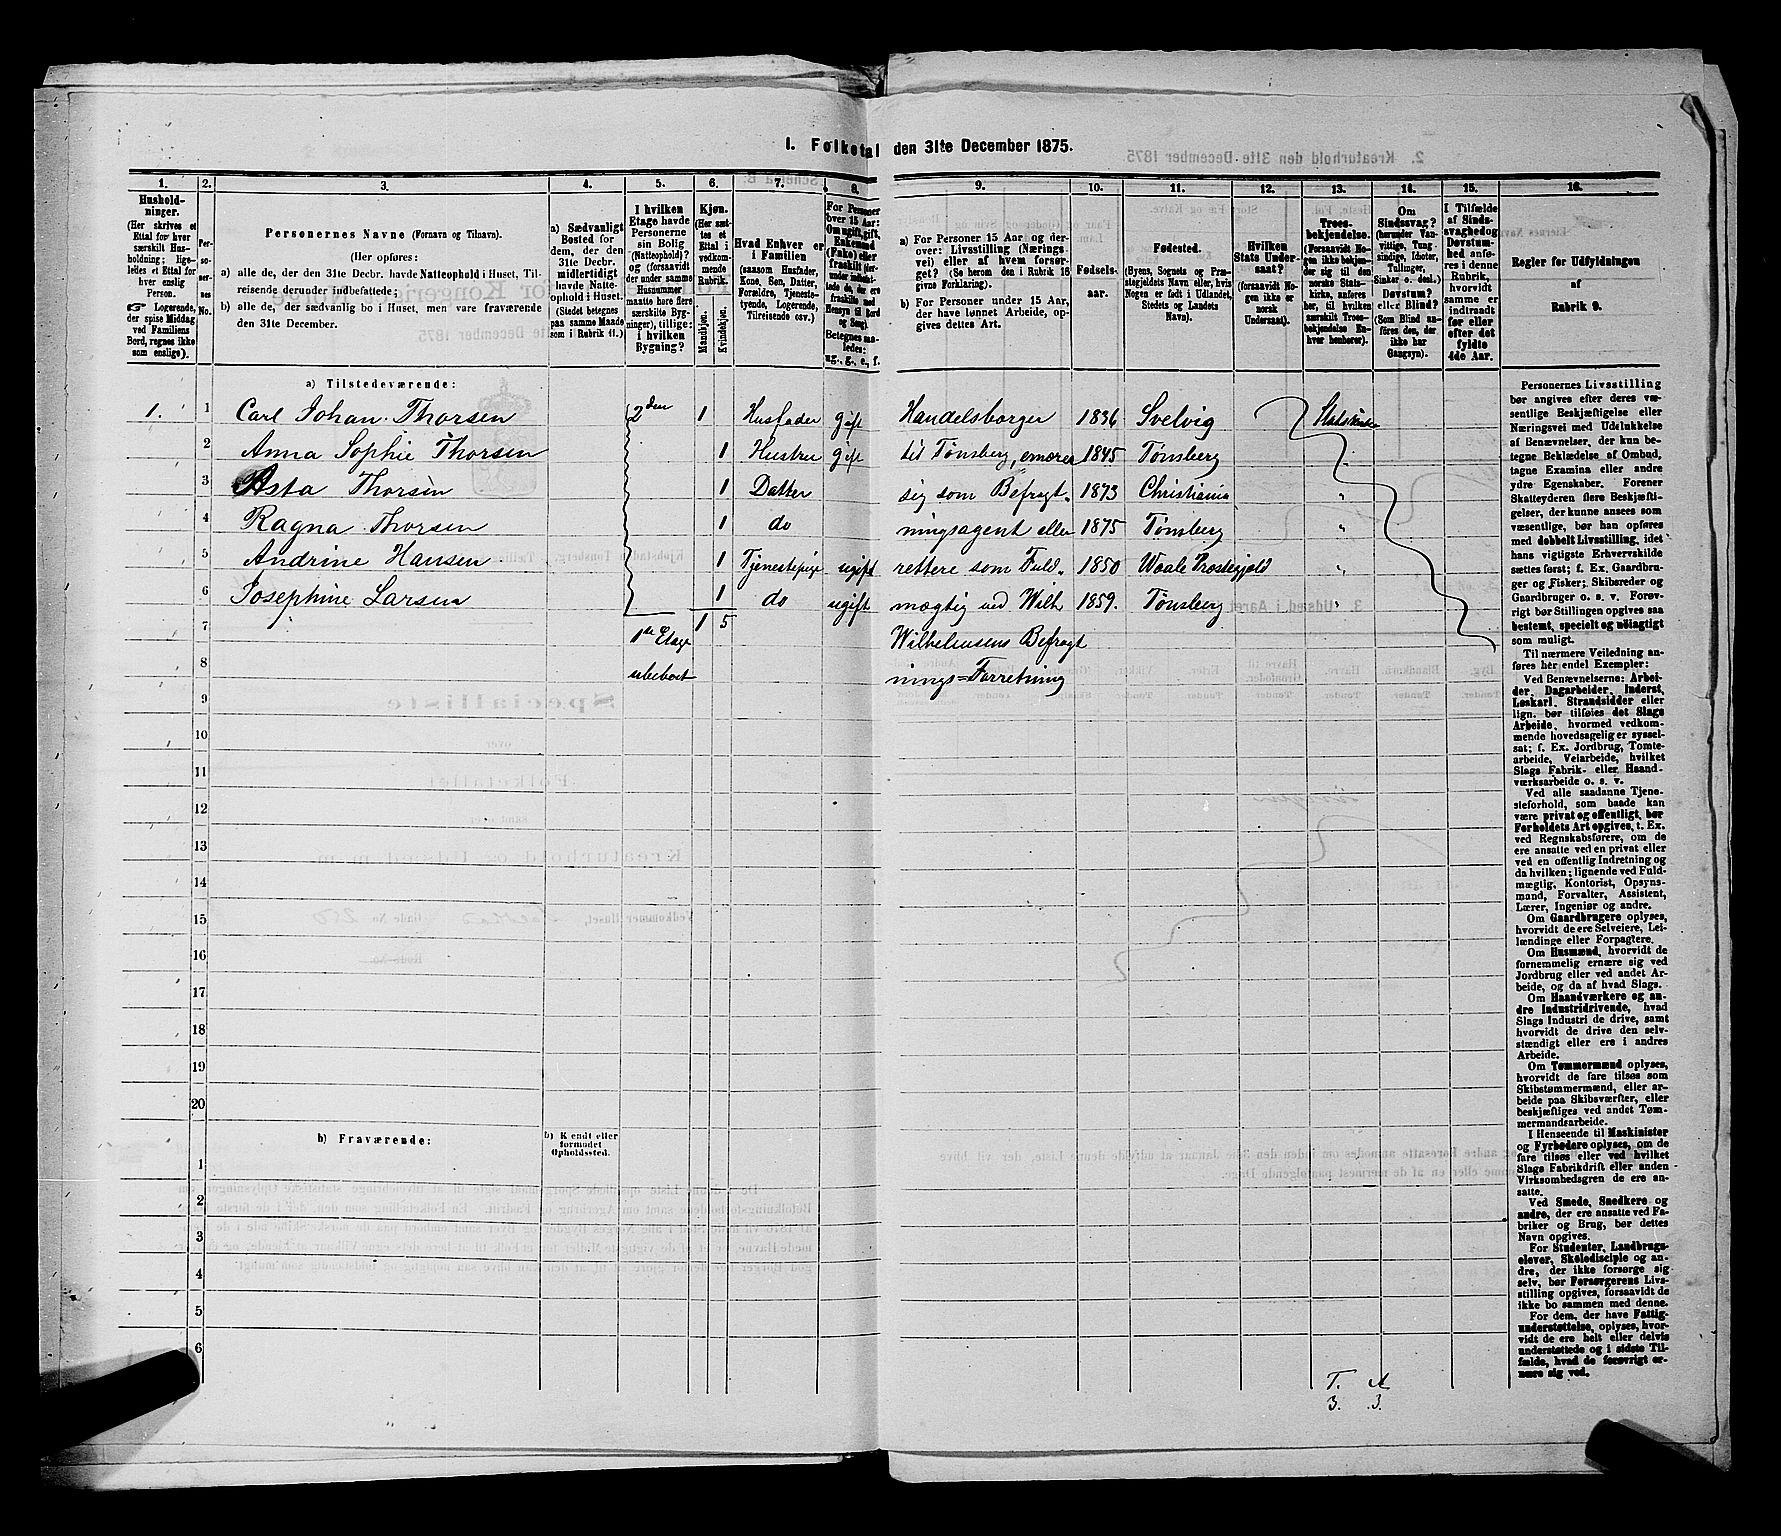 I. Folketal den 31te December 1875.
1. 2. 3. 4. 5. 6. 7. 8. 9. 10. 11. 12. 13. 14. 15. 16.
Hushold-
ninger.
(Her skrives et
Ettal for hver
særskilt Hus-
holdning; lige-
ledes et Ettal for
hver enslig
Person.
Logerende,
der spise Middag
ved Familiens
Bord, regnes ikke
som enslige).
Per-
so-
ner-
nes
No.
Personernes Navne (Fornavn og Tilnavn).
(Her opføres:
a) alle de, der den 31te Decbr. havde Natteophold i Huset, Til-
reisende derunder indbefattede;
b) alle de, der sædvanlig bo i Huset, men vare fraværende
den 31te December.
a) Sædvanligt
Bosted for
dem, der den
31te Decbr.
midlertidigt
havde Natte-
ophold i Huset.
(Stedet betegnes
paa samme Maade
som i Rubrik 11.)
I hvilken
Etage havde
Personerne
sin Bolig
(Natteophold)?
og (forsaavidt
der under samme
Husnummer
maatte høre flere
særskilte Byg-
ninger), tillige:
i hvilken
Bygning?
Kjøn.
(Her sæt-
tes et
Ettal i
vedkom-
mende
Rubrik.
Mandkjøn.
Kvindekjøn.
Hvad Enhver er
i Familien
(saasom Husfader,
Kone, Søn, Datter,
Forældre, Tjeneste-
tyende, Logerende,
Tilreisende osv.)
For Personer
over 15 Aar:
Om ugift, gift,
Enkemand
(Enke) eller
fraskilt
Betegnes saa-
ledes:
ug., g., e., f.
a) For Personer 15 Aar og der-
over: Livsstilling (Nærings-
vei) eller af hvem forsør-
get? (Se herom den i Rubrik 16
givne Forklaring).
b) For Personer under 15 Aar,
der have lønnet Arbeide, op-
gives dettes Art.
Fødsels-
aar.
Fødested.
(Byens, Sognets og Præ-
stegjeldets Navn eller, hvis
Nogen er født i Udlandet,
Stedets og Landets
Navn).
Hvilken
Stats Under-
saat?
(forsaavidt No-
gen ikke er
norsk
Undersaat).
Troes-
bekjendelse.
(Forsaavidt No-
gen ikke bekjen-
der sig til den
norske Stats-
kirke, anføres
her, til hvilken
særskilt Troes-
bekjendelse En-
hver henhører).
Om
Sindssvag?
(herunder Van-
vittige, Tung-
sindige, Idioter,
Tullinger,
Sinker o. desl.)
Døvstum?
eller Blind?
(Som Blind an-
føres den, der
ikke har
Gangsyn).
I Tilfælde
af Sinds-
svaghed og
Døvstum-
hed anfø-
res i denne
Rubrik,
hvorvidt
samme er
indtraadt
før eller
efter det
fyldte
4de Aar.
Regler for Udfyldningen
af
Rubrik 9.
a) Tilstedeværende:
1. 1 Carl Johan Thorsen 2den 1 Husfader gift Handelsborger 1836 Svelvig Statskirke
2 Anna Sophie Thorsen 1 Hustru gift til Tønsberg, ernærer 1845 Tønsberg "
3 Asta Thorsen 1 Datter sig som Befragt- 1873 Christiania "
4 Ragna Thorsen 1 do ningsagent eller 1875 Tønsberg "
5 Andrine Hansen 1 Tjenestepige ugift rettere som Fuld- 1850 Waale Præstegjeld "
6 Josephine Larsen 1 do ugift mægtig ved Wilh 1859. Tønsberg "
7 1ste Etage 1 5 Wilhelmsens Befragt
8 ubeboet nings=Forretning
9
10
11
12
13
14
15
16
17
18
19
20
b) Fraværende: b) Kjendt eller
formodet
Opholdssted.
1
2
3
4
5
6
Personernes Livsstilling
bør angives efter deres væ-
sentlige Beskjæftigelse eller
Næringsvei med Udelukkelse
af Benævnelser, der kun be-
tegne Beklædelse af Ombud,
tagne Examina eller andre
ydre Egenskaber. Forener
Skatteyderen flere Beskjæfti-
gelser, der kunne ansees som
væsentlige, bør han opføres
med dobbelt Livsstilling, idet
hans vigtigste Erhvervskilde
sættes først; f. Ex. Gaardbru-
ger og Fisker; Skibsreder og
Gaardbruger o. s. v. Forøv-
rigt bør Stillingen opgives saa
bestemt, specielt og nøiagtigt
som muligt.
Til nærmere Veiledning an-
føres her endel Exempler:
Ved Benævnelserne: Arbei-
der, Dagarbeider, Inderst,
Løskarl, Strandsidder eller
lign. bør tilføies det Slags
Arbeide, hvormed vedkom-
mende hovedsagelig er syssel-
sat; f. Ex. Jordbrug, Tomte-
arbeide, Veiarbeide, hvilket
Slags Fabrik- eller Haand-
værksarbeide o. s. v.
Ved alle saadanne Tjene-
steforhold, som baade kan
være privat og offentligt, bør
Forholdets Art opgives, t. Ex.
ved Regnskabsførere, om de
ere ansatte ved en privat eller
ved en offentlig Indretning og
da hvilken; lignende ved Fuld-
mægtig, Kontorist, Opsyns-
mand, Forvalter, Assistent,
Lærer, Ingeniør og andre.
Om Gaardbrugere oplyses,
hvorvidt de ere Selveiere, Lei-
lændinge eller Forpagtere.
Om Husmænd, hvorvidt de
fornemmelig ernære sig ved
Jordbrug eller ved andet Ar-
beide, og da af hvad Slags.
Om Haandværkere og an-
dre Industridrivende, hvad
Slags Industri de drive, samt
hvorvidt de drive den selv-
stændigt eller ere i andres
Arbeide.
Om Tømmermænd oplyses,
hvorvidt de fare tilsøs som
Skibstømmermænd, eller ar-
beide paa Skibsværfter, eller
beskjæftiges ved andet Tøm-
mermandsarbeide.
I Henseende til Maskinister
og Fyrbødere oplyses, om de
fare tilsøs eller ved hvilket
Slags Fabrikdrift eller anden
Virksomhedsgren de ere an-
satte.
Ved Smede, Snedkere og
andre, der ere ansatte ved Fa-
briker og Brug, bør dettes
Navn opgives.
For Studenter, Landbrugs-
elever, Skoledisciple og an-
dre, der ikke forsørge sig
selv, bør Forsørgerens Livs-
stilling opgives, forsaavidt de
ikke bo sammen med denne.
For dem, der have Fattig-
understøttelse, oplyses, hvor-
vidt de ere helt eller delvis
understøttede og i sidste Til-
fælde, hvad de forøvrigt er-
nære sig ved.
T. A
3. 3.